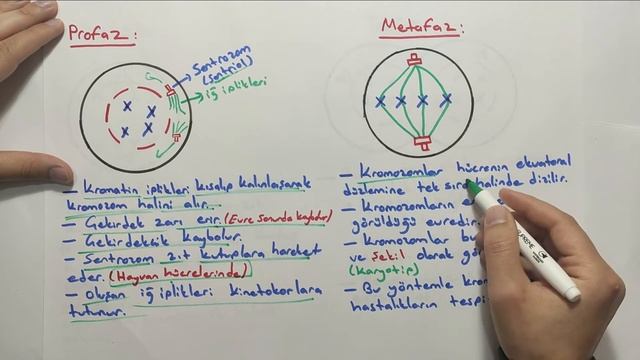 Profaz:
Sentrozom
(Sentriol)
iğ iplikleri
— Kromatin iplikleri kısalıp kalınlaşarak
kromozom halini alır.
— Çekirdek zarı erir. (Evre sonunda kaybolur)
— Çekirdekçik kaybolur.
— Sentrozom zıt kutuplara hareket
eder. (Hayvan hücrelerinde)
— Oluşan iğ iplikleri kinetokorlara
tutunur.
Metafaz:
— Kromozomlar hücrenin ekvatoral
düzlemine tek sıra halinde dizilir.
— Kromozomların
görüldüğü evredir.
— Kromozomlar bu
ve şekil olarak
(Karyotip)
— Bu yöntemle
hastalıkların